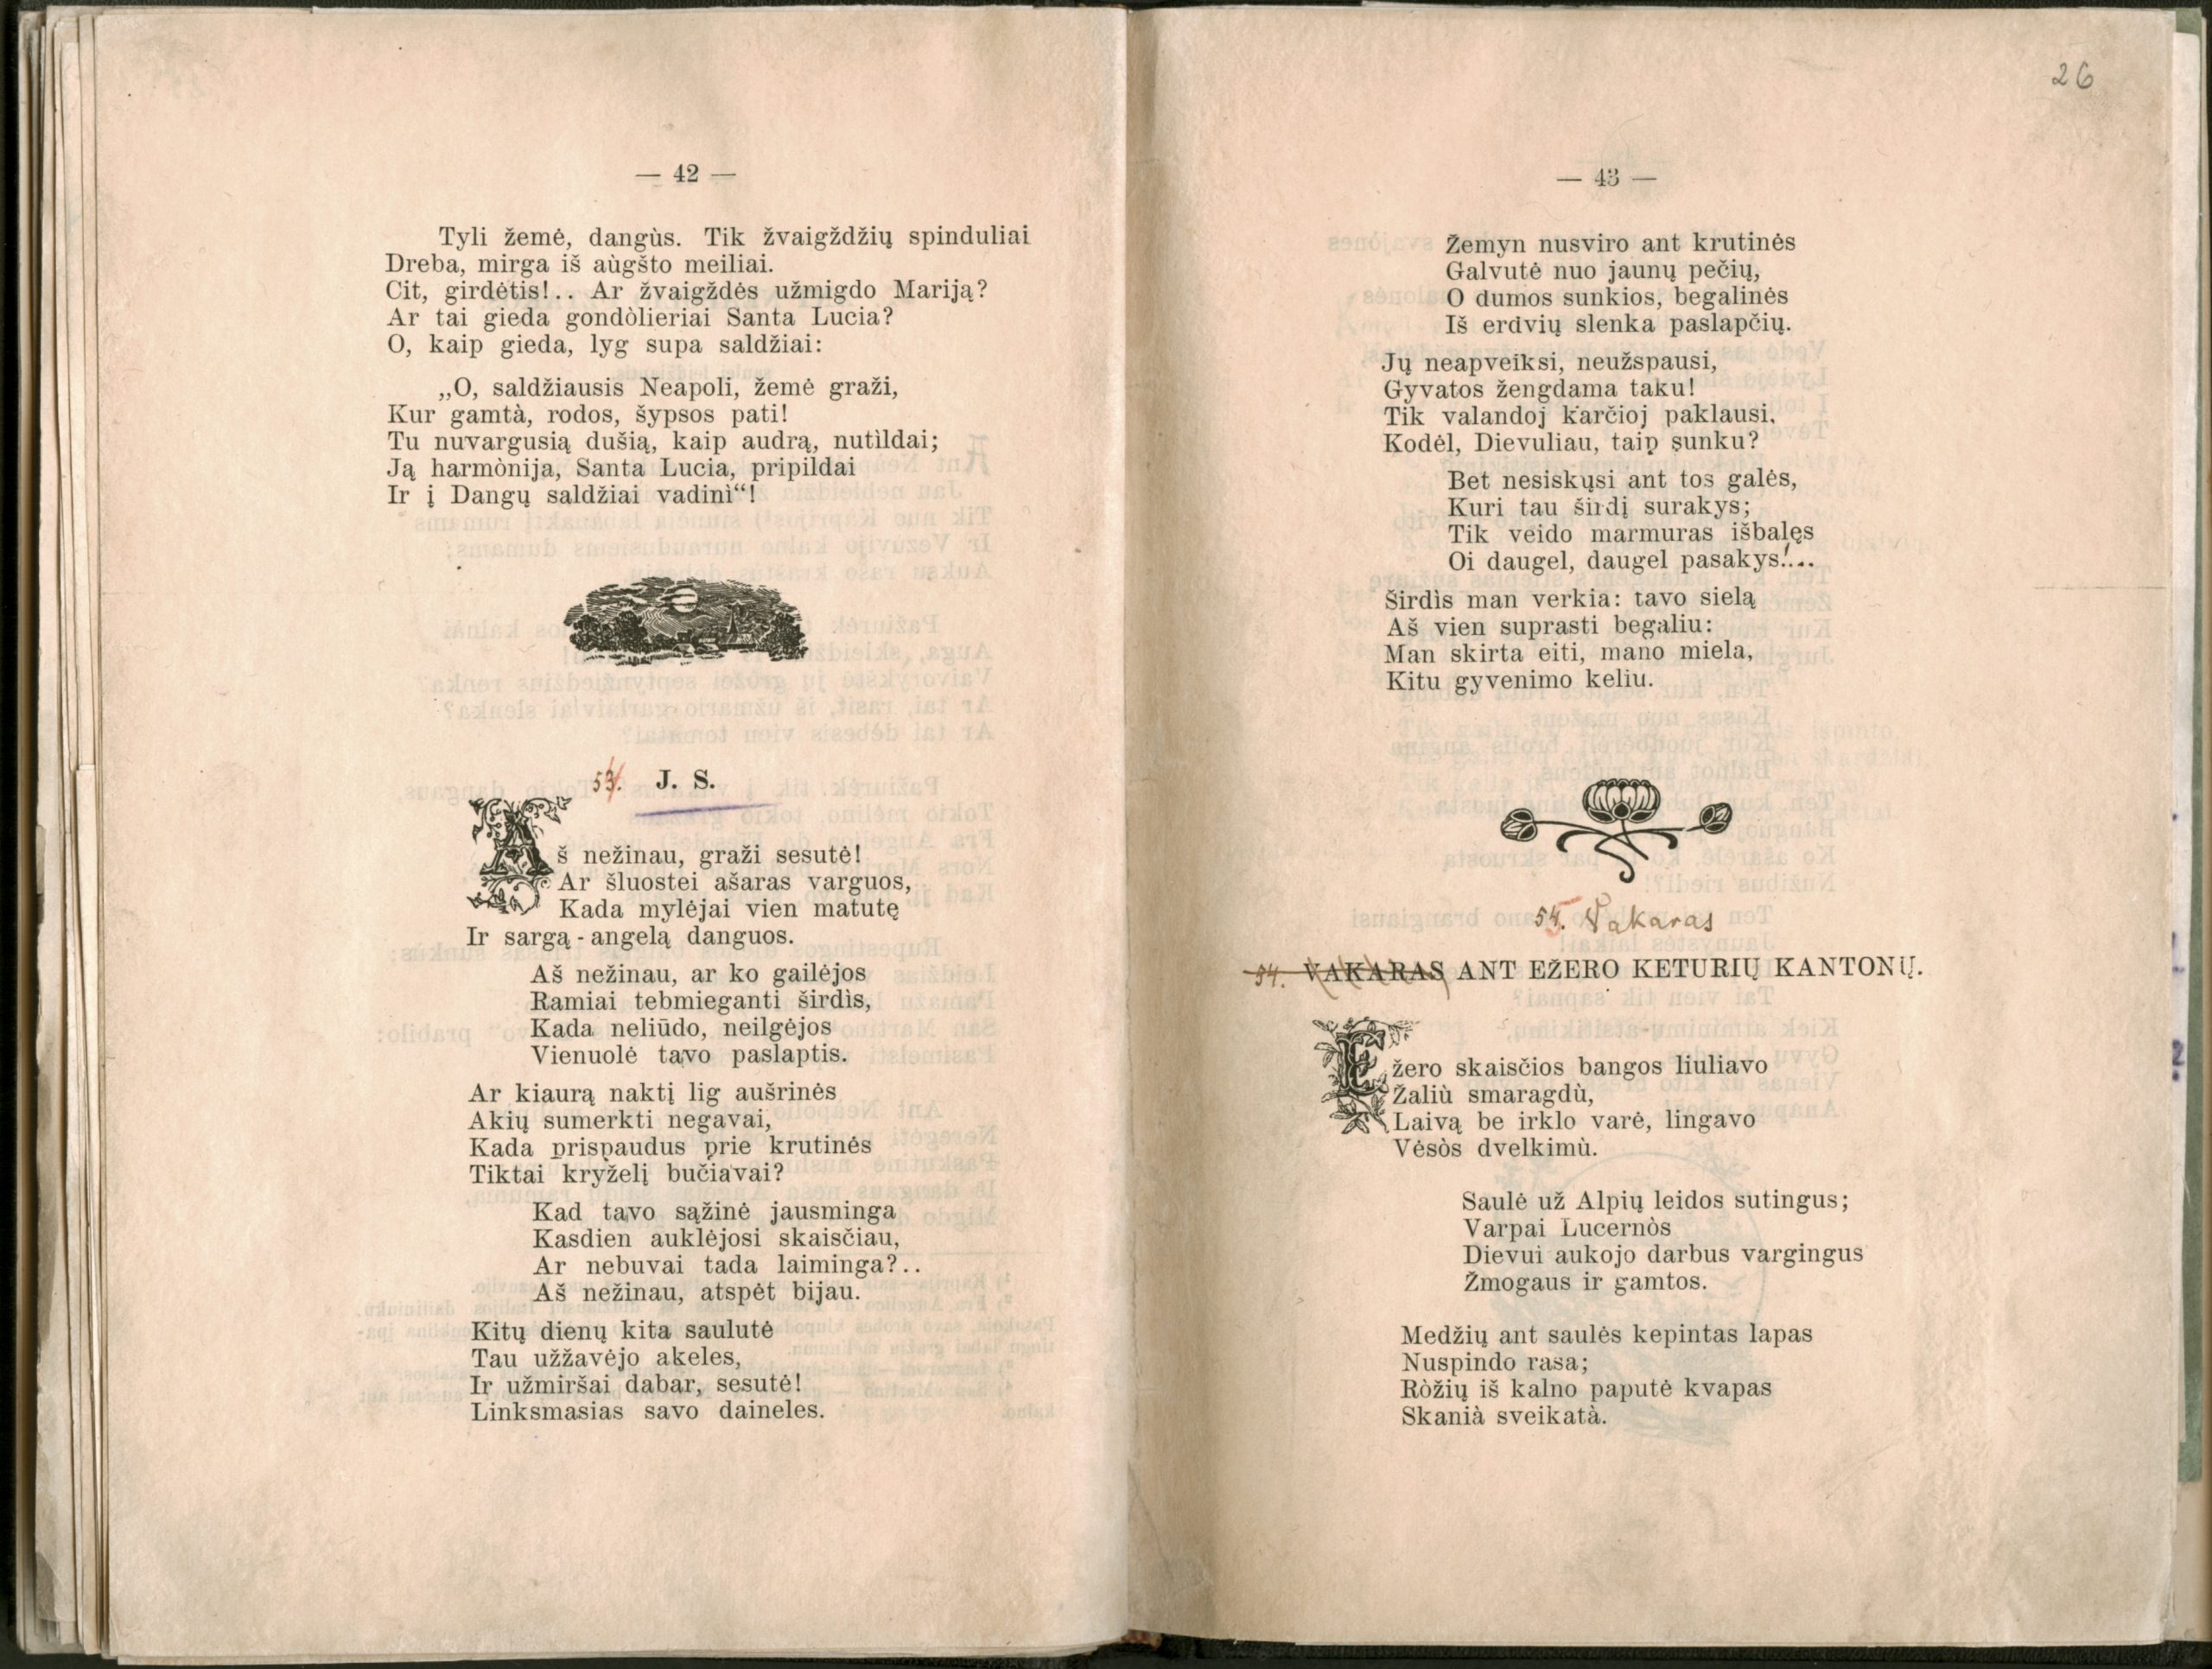 — 42 —
Tyli žemė, dangùs. Tik žvaigždžių spinduliai
Dreba, mirga iš aùgšto meiliai.
Cit, girdėtis!.. Ar žvaigždės užmigdo Mariją?
Ar tai gieda gondòlieriai Santa Lucia?
O, kaip gieda, lyg supa saldžiai:
„O, saldžiausis Neapoli, žemė graži,
Kur gamtà, rodos, šypsos pati!
Tu nuvargusią dušią, kaip audrą, nutìldai;
Ją harmònija, Santa Lucia, pripildai
Ir į Dangų saldžiai vadinì“!
53. J. S.
Aš nežinau, graži sesutė!
Ar šluostei ašaras varguos,
Kada mylėjai vien matutę
Ir sargą-angelą danguos.
Aš nežinau, ar ko gailėjos
Ramiai tebmieganti širdìs,
Kada neliūdo, neilgėjos
Vienuolė tavo paslaptis.
Ar kiaurą naktį lig aušrinės
Akių sumerkti negavai,
Kada prispaudus prie krutinės
Tiktai kryželį bučiavai?
Kad tavo sąžinė jausminga
Kasdien auklėjosi skaisčiau,
Ar nebuvai tada laiminga?..
Aš nežinau, atspėt bijau.
Kitų dienų kita saulutė
Tau užžavėjo akeles,
Ir užmiršai dabar, sesutė!
Linksmasias savo daineles.
26
— 43 —
Žemyn nusviro ant krutinės
Galvutė nuo jaunų pečių,
O dumos sunkios, begalinės
Iš erdvių slenka paslapčių.
Jų neapveiksi, neužspausi,
Gyvatos žengdama taku!
Tik valandoj karčioj paklausi,
Kodėl, Dievuliau, taip sunku?
Bet nesiskųsi ant tos galės,
Kuri tau širdį surakys;
Tik veido marmuras išbalęs
Oi daugel, daugel pasakys!...
Širdìs man verkia: tavo sielą
Aš vien suprasti begaliu:
Man skirta eiti, mano miela,
Kitu gyvenimo keliu.
54. Vakaras
54. VAKARAS ANT EŽERO KETURIŲ KANTONŲ.
Ežero skaisčios bangos liuliavo
Žaliù smaragdù,
Laivą be irklo varė, lingavo
Vėsòs dvelkimù.
Saulė už Alpių leidos sutingus;
Varpai Lucernòs
Dievui aukojo darbus vargingus
Žmogaus ir gamtos.
Medžių ant saulės kepintas lapas
Nuspindo rasa;
Ròžių iš kalno paputė kvapas
Skanià sveikatà.